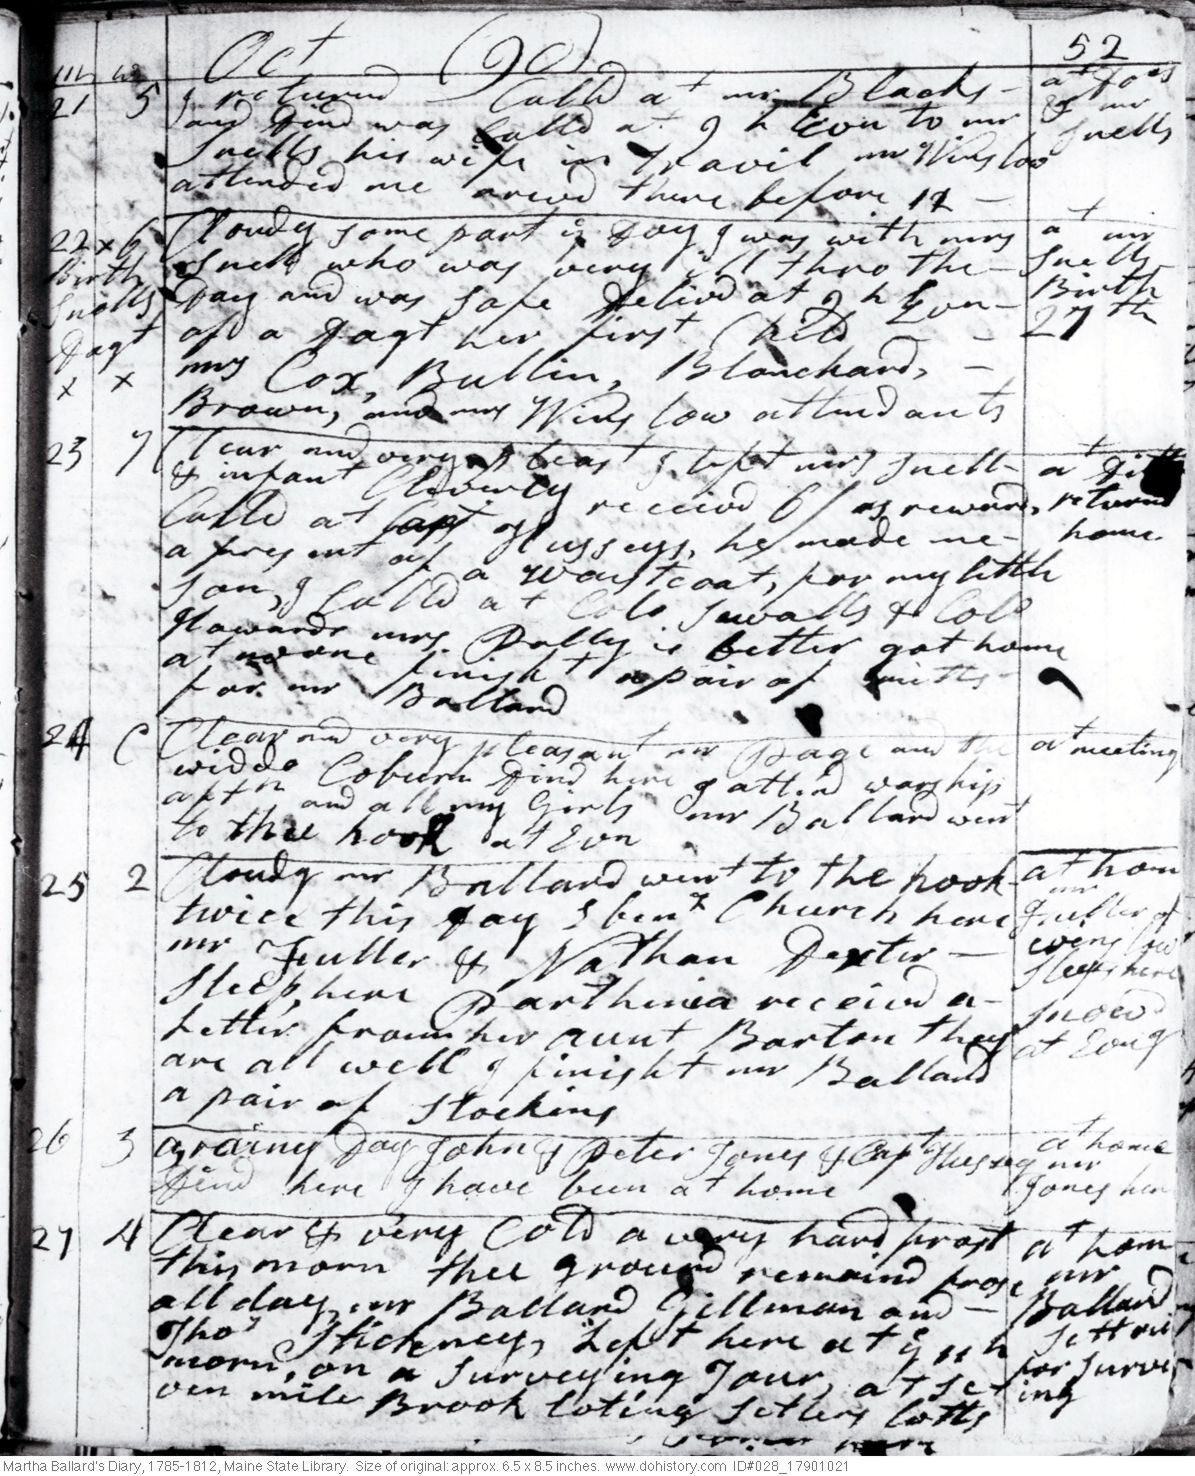 Oct (90) 52
m w
21 5 I returnd Calld at mr Blacks
and Dind was Calld at 9 h Evn to mr
Snells his wife in Travil mr Winslow
attended me arivd there before 12
at Jo's
& mr
Snells
22 x 6 Cloudy some part ye Day I was with mrs
Snell who was very ill thro the
Day and was safe Delivd at 9 h Evn
of a Dagt her first Child
mrs Cox, Bullin, Blanchard,
Brown, and mrs Winslow attendants
Birth
Snells
Dagt
x x
at mr
Snells
Birth
27th
23 7 Clear and very pleast I left mrs Snell
& infant Cleverly receivd 6/ as reward,
Calld at Capt Husseys, he made me
a present of a wastcoat, for my little
son, I Calld at Colo Sewalls & Colo
Howards mrs Polly is better got home
at noone finisht a pair of mitts
for mr Ballard
at Ditto
returnd
home.
24 C Clear and very pleasant mr Page and the
widdo Coburn Dind here I attend warship
aftn and all my Girls mr Ballard went
to thee hook at Evn
at meeting
25 2 Cloudy mr Ballard went to the hook
twice this Day I bent Church here
mr Fuller & Nathan Dexter
Sleep, here Parthenia receivd a
Letter from her aunt Barton they
are all well I finisht mr Ballard
a pair of Stockins
at hom
mr
Fuller of
winslow
Sleeps here
snowd
at Evng
26 3 a rainey Day John & Peter Jones & Capt Hussey
Dind here I have been at home
at home
mr
Jones here
27 4 Clear & very Cold a very hard frost
this morn thee ground remaind frose
all day, mr Ballard Gillman and
Thos Stickney, Left here at 9 h
morn, on a Surveying Tour, at Se
ven mile Brook loting Setlers lotts
at hom
mr
Ballard
sett out
for survei
ing
Martha Ballard's Diary, 1785-1812, Maine State Library. Size of original: approx. 6.5 x 8.5 inches. www.dohistory.com ID#028_17901021